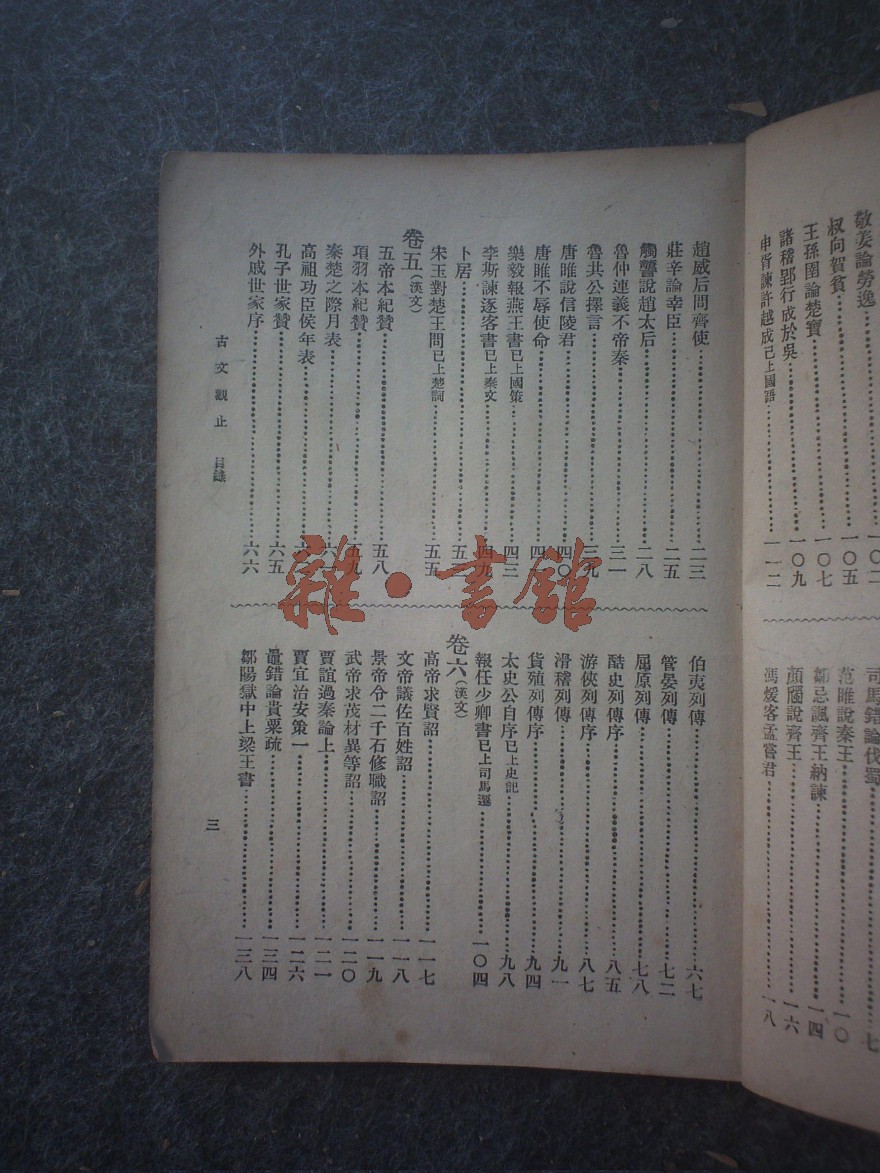 敬姜論勞逸……一〇二
叔向賀貧……一〇五
王孫圉論楚寶……一〇七
諸稽郢行成於吳……一〇九
申胥諫許越成已上國語……一一二
司馬錯論伐蜀……七
范雎說秦王……一〇
鄒忌諷齊王納諫……一四
顏斶說齊王……一六
馮煖客孟嘗君……一八
趙威后問齊使……二三
莊辛論幸臣……二五
觸讋說趙太后……二八
魯仲連義不帝秦……三一
魯共公擇言……三九
唐雎說信陵君……四〇
唐雎不辱使命……四一
樂毅報燕王書已上國策……四三
李斯諫逐客書已上秦文……四九
卜居……五三
宋玉對楚王問已上楚詞……五五
卷五(漢文)
五帝本紀贊……五八
項羽本紀贊……五九
秦楚之際月表……六一
高祖功臣侯年表……六
孔子世家贊……六五
外戚世家序……六六
伯夷列傳……六七
管晏列傳……七二
屈原列傳……七八
酷吏列傳序……八五
游俠列傳序……八七
滑稽列傳……九一
貨殖列傳序……九四
太史公自序已上史記……九八
報任少卿書已上司馬遷……一〇四
卷六(漢文)
高帝求賢詔……一一七
文帝議佐百姓詔……一一八
景帝令二千石修職詔……一一九
武帝求茂材異等詔……一二〇
賈誼過秦論上……一二一
賈宜治安策一……一二六
鼂錯論貴粟疏……一三四
鄒陽獄中上梁王書……一三八
古文觀止 目錄
三
雜·書館